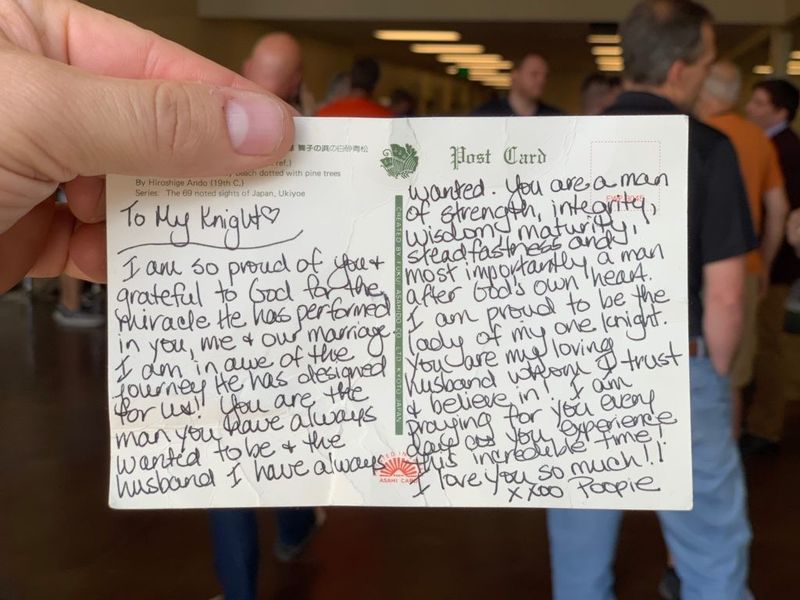 舞子の浜の白砂青松
ref.)
beach dotted with pine trees
By Hiroshige Ando (19th C.)
Series. The 69 noted sights of Japan, Ukiyoe
Post Card
CREATED BY FUKUI ASAHIDO CO., LTD. KYOTO JAPAN
ASAHI CARD
To My Knight♡
I am so proud of you &
grateful to God for the
miracle He has performed
in you, me & our marriage.
I am in awe of the
journey He has designed
for us! You are the
man you have always
wanted to be & the
husband I have always
wanted. You are a man
of strength, integrity,
wisdom, maturity,
steadfastness and,
most importantly a man
after God's own heart.
I am proud to be the
lady of my one knight.
You are my loving
husband whom I trust
& believe in! I am
praying for you every
day as you experience
this incredible time!
I love you so much!!
xxoo Poopie